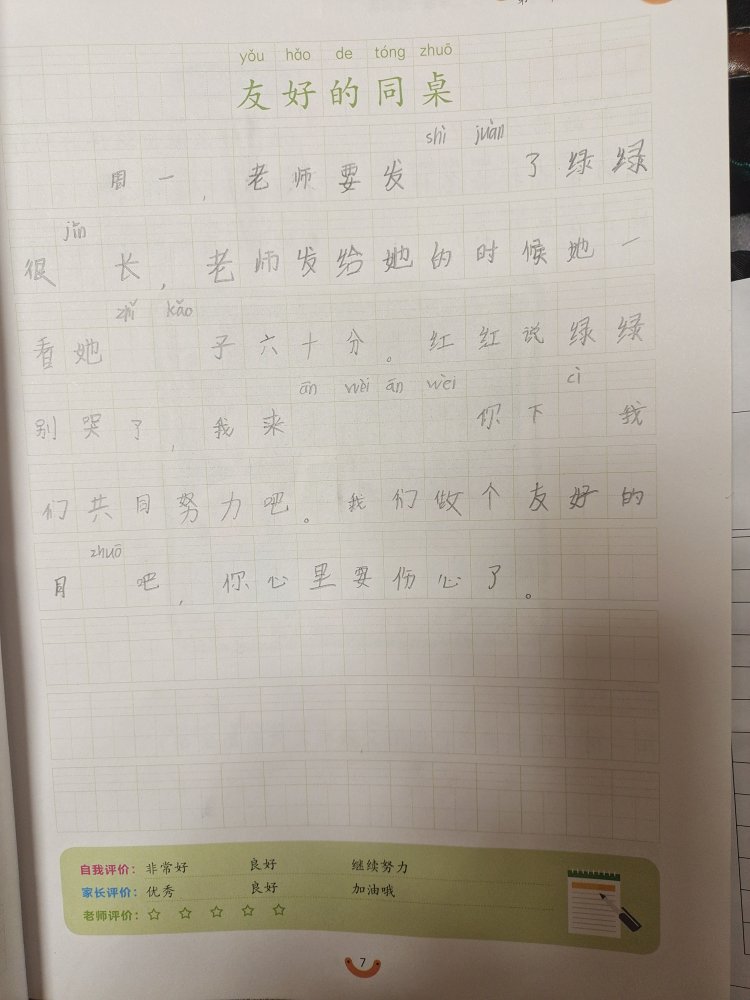 yǒu hǎo de tóng zhuō
友好的同桌
周一，老师要发shì juàn了绿绿
很jǐn长，老师发给她的时候她一
看她zhǐ kǎo子六十分。红红说绿绿
别哭了，我来ān wèi ān wèi你下cì我
们共同努力吧。我们做个友好的
月zhuō吧，你心里要伤心了。
自我评价：非常好 良好 继续努力
家长评价：优秀 良好 加油哦
老师评价：☆ ☆ ☆ ☆ ☆
7